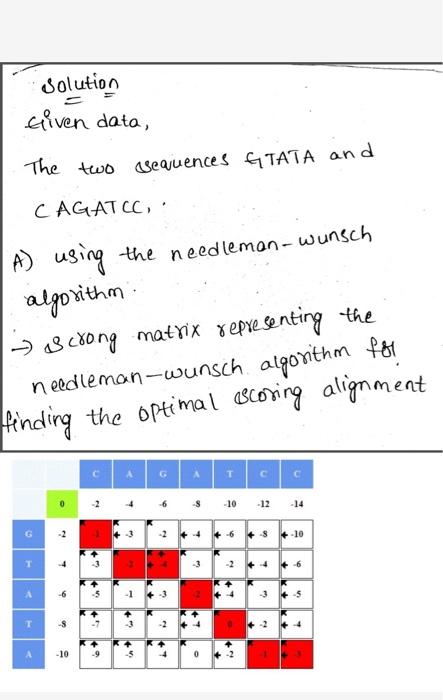 Solution
Given data,
The two sequences GTATA and
CAGATCC,
A) using the needleman-wunsch
algorithm.
→ Scrong matrix representing the
needleman-wunsch algorithm for
finding the optimal scoring alignment
C A G A T C C
0 -2 -4 -6 -8 -10 -12 -14
G -2 -1 -3 -2 -4 -6 -8 -10
T -4 -3 -2 -4 -3 -2 -4 -6
A -6 -5 -1 -3 -2 -4 -3 -5
T -8 -7 -3 -2 -4 0 -2 -4
A -10 -9 -5 -4 0 -2 -1 -3